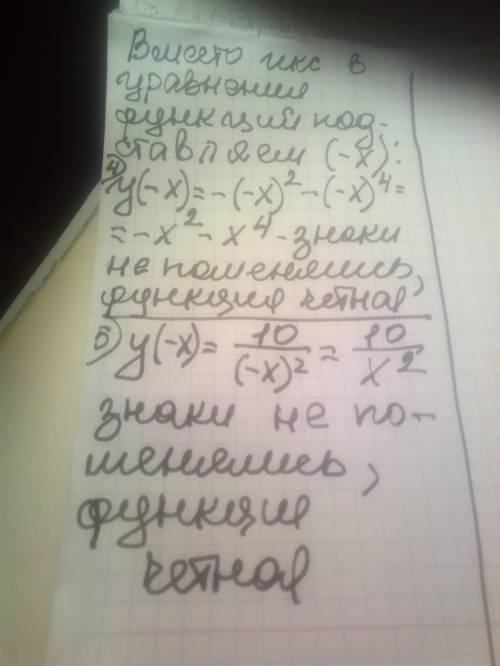 Вместо икс в
уравнения
функций под-
ставляем (-x):
4) y(-x)=-(-x)²-(-x)⁴=
=-x²-x⁴-знаки
не поменялись,
функция четная
5) y(-x)= 10/(-x)² = 10/x²
знаки не по-
менялись,
функция
четная